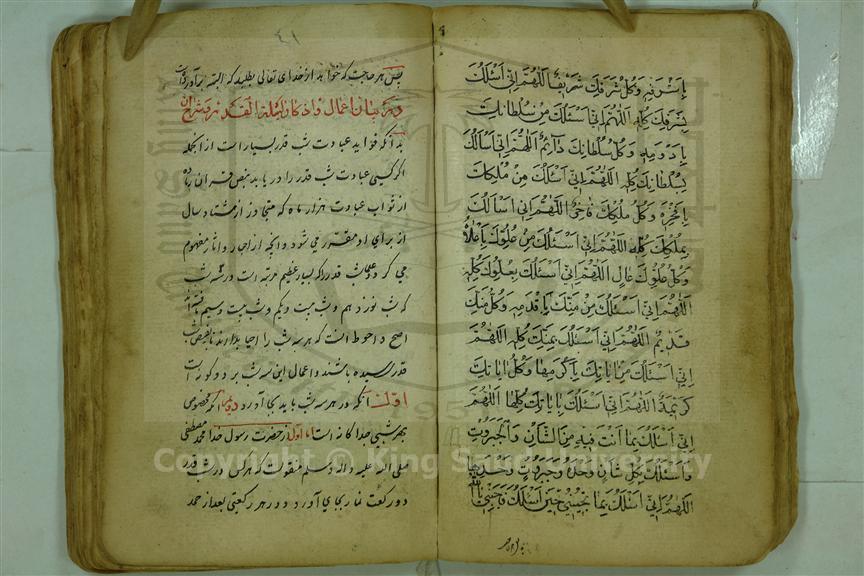 بِاَشْرَفِهِ وَكُلُّ شَرَفِكَ شَرِيفٌ اَللّٰهُمَّ اِنِّي اَسْئَلُكَ
بِشَرَفِكَ كُلِّهِ اَللّٰهُمَّ اِنِّي اَسْئَلُكَ مِنْ سُلْطَانِكَ
بِاَدْوَمِهِ وَكُلُّ سُلْطَانِكَ دَآئِمٌ اَللّٰهُمَّ اِنِّي اَسْأَلُكَ
بِسُلْطَانِكَ كُلِّهِ اَللّٰهُمَّ اِنِّي اَسْئَلُكَ مِنْ مُلْكِكَ
بِاَفْخَرِهِ وَكُلُّ مُلْكِكَ فَاخِرٌ اَللّٰهُمَّ اِنِّي اَسْأَلُكَ
بِمُلْكِكَ كُلِّهِ اَللّٰهُمَّ اِنِّي اَسْئَلُكَ مِنْ عُلُوِّكَ بِاَعْلَاهُ
وَكُلُّ عُلُوِّكَ عَالٍ اَللّٰهُمَّ اِنِّي اَسْئَلُكَ بِعُلُوِّكَ كُلِّهِ
اَللّٰهُمَّ اِنِّي اَسْئَلُكَ مِنْ مَنِّكَ بِاَقْدَمِهِ وَكُلُّ مَنِّكَ
قَدِيمٌ اَللّٰهُمَّ اِنِّي اَسْئَلُكَ بِمَنِّكَ كُلِّهِ اَللّٰهُمَّ
اِنِّي اَسْئَلُكَ مِنْ اٰيَاتِكَ بِاَكْرَمِهَا وَكُلُّ اٰيَاتِكَ
كَرِيمَةٌ اَللّٰهُمَّ اِنِّي اَسْئَلُكَ بِاٰيَاتِكَ كُلِّهَا اَللّٰهُمَّ
اِنِّي اَسْئَلُكَ بِمَا اَنْتَ فِيهِ مِنَ الشَّأْنِ وَالْجَبَرُوتِ
وَاَسْئَلُكَ بِكُلِّ شَأْنٍ وَحْدَهُ وَجَبَرُوتٍ وَحْدَهَا
اَللّٰهُمَّ اِنِّي اَسْئَلُكَ بِمَا تُجِيبُنِي حِينَ اَسْئَلُكَ فَاَجِبْنِي يَا اَللّٰهُ
٤١
پس هر حاجت که خواهد از خدای تعالی بطلبد که البته برآورده است
در بیان اعمال واذکار لیلة القدر
بدانکه فواید عبادت شب قدر بسیار است از آنجمله
اگر کسی عبادت شب قدر را دریابد بنص قرآن زیاده
از ثواب عبادت هزار ماه که متجاوز از هشتاد سال
از برای او مقرر می شود وآنچه از اخبار وآثار مفهوم
می گردد شب قدر را که بسیار عظیم مرتبه است در سه شب
که شب نوزدهم وشب بیست ویکم وشب بیست وسیم
اصح واحوط آنست که هر سه شب را احیا بدارند تا بفیض شب
قدر رسیده باشند واعمال این سه شب بر دو گونه است
اول آنکه در هر سه شب باید بجا آورد دویم آنکه مخصوص
بهر شبی جداگانه است اما اول از حضرت رسول خدا محمد مصطفی
صلی الله علیه واله وسلم منقولست که هر کس در شب قدر
دو رکعت نماز بجای آورد ودر هر رکعتی بعد از حمد
Copyright © King Saud University